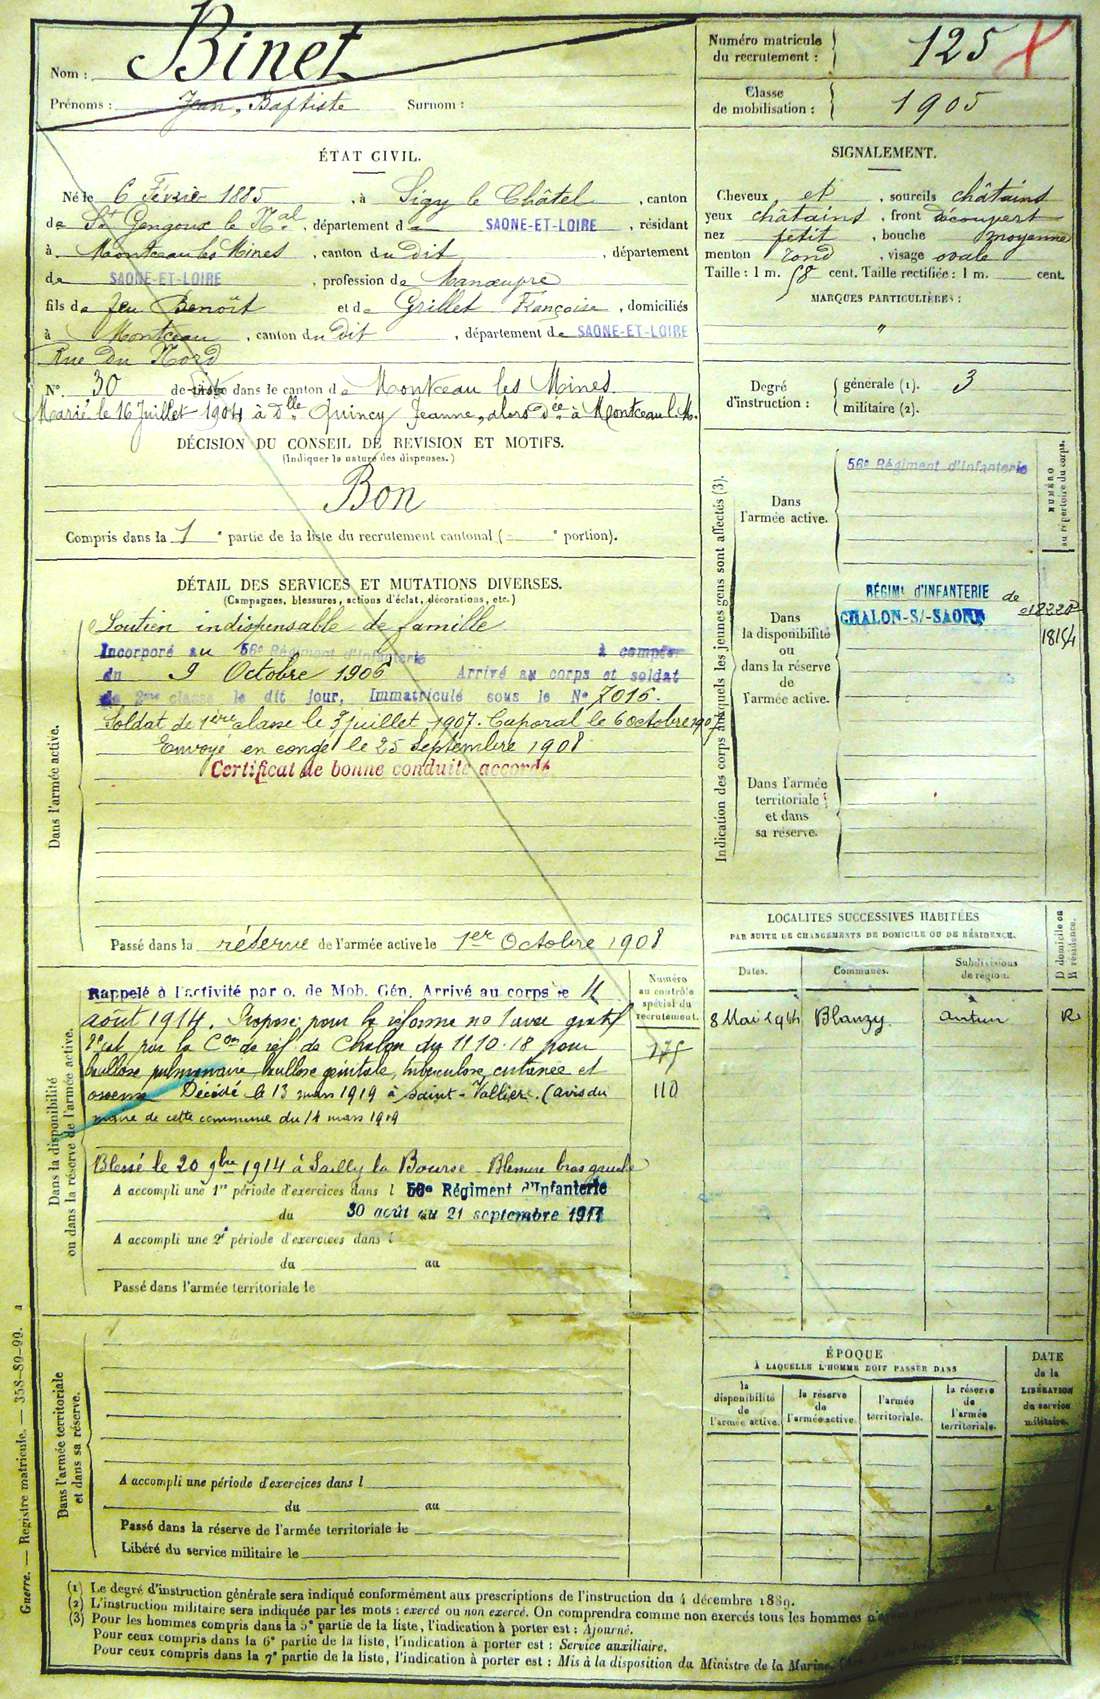 Nom : Binet
Prénoms : Jean, Baptiste Surnom :
Numéro matricule du recrutement : 125
Classe de mobilisation : 1905
ÉTAT CIVIL.
Né le 6 Février 1885, à Sigy le Châtel, canton
de St Gengoux le Nal, département de SAONE-ET-LOIRE, résidant
à Montceau les Mines, canton du dit, département
de SAONE-ET-LOIRE, profession de Manœuvre
fils de feu Benoît et de Grillet Françoise, domiciliés
à Montceau, canton du dit, département de SAONE-ET-LOIRE
Rue du Nord
N° 30 de tirage dans le canton de Montceau les Mines
Marié le 16 Juillet 1904 à Dlle Quincy Jeanne, alors dée à Montceau l. M.
DÉCISION DU CONSEIL DE REVISION ET MOTIFS.
(Indiquer la nature des dispenses.)
Bon
Compris dans la 1e partie de la liste du recrutement cantonal ( e portion).
SIGNALEMENT.
Cheveux et, sourcils châtains
yeux châtains, front découvert
nez petit, bouche moyenne
menton rond, visage ovale
Taille : 1 m. 58 cent. Taille rectifiée : 1 m. cent.
MARQUES PARTICULIÈRES :
"
Degré d'instruction : générale (1). 3
militaire (2).
Indication des corps auxquels les jeunes gens sont affectés (3).
NUMÉRO au répertoire du corps.
Dans l'armée active.
56e Régiment d'Infanterie
Dans la disponibilité ou dans la réserve de l'armée active.
RÉGIMt d'INFANTERIE de
CHALON-S/-SAONE
Dans l'armée territoriale et dans sa réserve.
DÉTAIL DES SERVICES ET MUTATIONS DIVERSES.
(Campagnes, blessures, actions d'éclat, décorations, etc.)
Dans l'armée active.
Soutien indispensable de famille
Incorporé au 56e Régiment d'Infanterie à compter
du 9 Octobre 1906 Arrivé au corps et soldat
de 2me classe le dit jour, Immatriculé sous le No 7015.
Soldat de 1ère classe le 7 juillet 1907. Caporal le 6 octobre 1907
Envoyé en congé le 25 Septembre 1908
Certificat de bonne conduite accordé
Passé dans la réserve de l'armée active le 1er Octobre 1908
Dans la disponibilité ou dans la réserve de l'armée active.
Numéro au contrôle spécial du recrutement.
175
110
Rappelé à l'activité par o. de Mob. Gén. Arrivé au corps le 4
août 1914. Proposé pour la réforme no 1 avec gratif
2e cat par la Con de réf de Chalon du 11 10. 18 pour
bacillose pulmonaire, bacillose génitale, tuberculose cutanée et
osseuse Décédé le 13 mars 1919 à Saint-Vallier. (avis du
maire de cette commune du 14 mars 1919
Blessé le 20 9bre 1914 à Sailly la Bourse - Blessure bras gauche
A accompli une 1re période d'exercices dans l 56e Régiment d'Infanterie
du 30 août au 21 septembre 1911
A accompli une 2e période d'exercices dans l
du au
Passé dans l'armée territoriale le
LOCALITÉS SUCCESSIVES HABITÉES
PAR SUITE DE CHANGEMENTS DE DOMICILE OU DE RÉSIDENCE.
Dates. Communes. Subdivisions de région. D domicile ou R résidence.
8 Mai Blanzy Autun R
Dans l'armée territoriale et dans sa réserve.
A accompli une période d'exercices dans l
du au
Passé dans la réserve de l'armée territoriale le
Libéré du service militaire le
ÉPOQUE
À LAQUELLE L'HOMME DOIT PASSER DANS
la disponibilité de l'armée active.
la réserve de l'armée active.
l'armée territoriale.
la réserve de l'armée territoriale.
DATE de la LIBÉRATION du service militaire.
Guerre. — Registre matricule. — 358-89-99.
(1) Le degré d'instruction générale sera indiqué conformément aux prescriptions de l'instruction du 4 décembre 1889.
(2) L'instruction militaire sera indiquée par les mots : exercé ou non exercé. On comprendra comme non exercés tous les hommes
(3) Pour les hommes compris dans la 5e partie de la liste, l'indication à porter est : Ajourné.
Pour ceux compris dans la 6e partie de la liste, l'indication à porter est : Service auxiliaire.
Pour ceux compris dans la 7e partie de la liste, l'indication à porter est : Mis à la disposition du Ministre de la Marine.